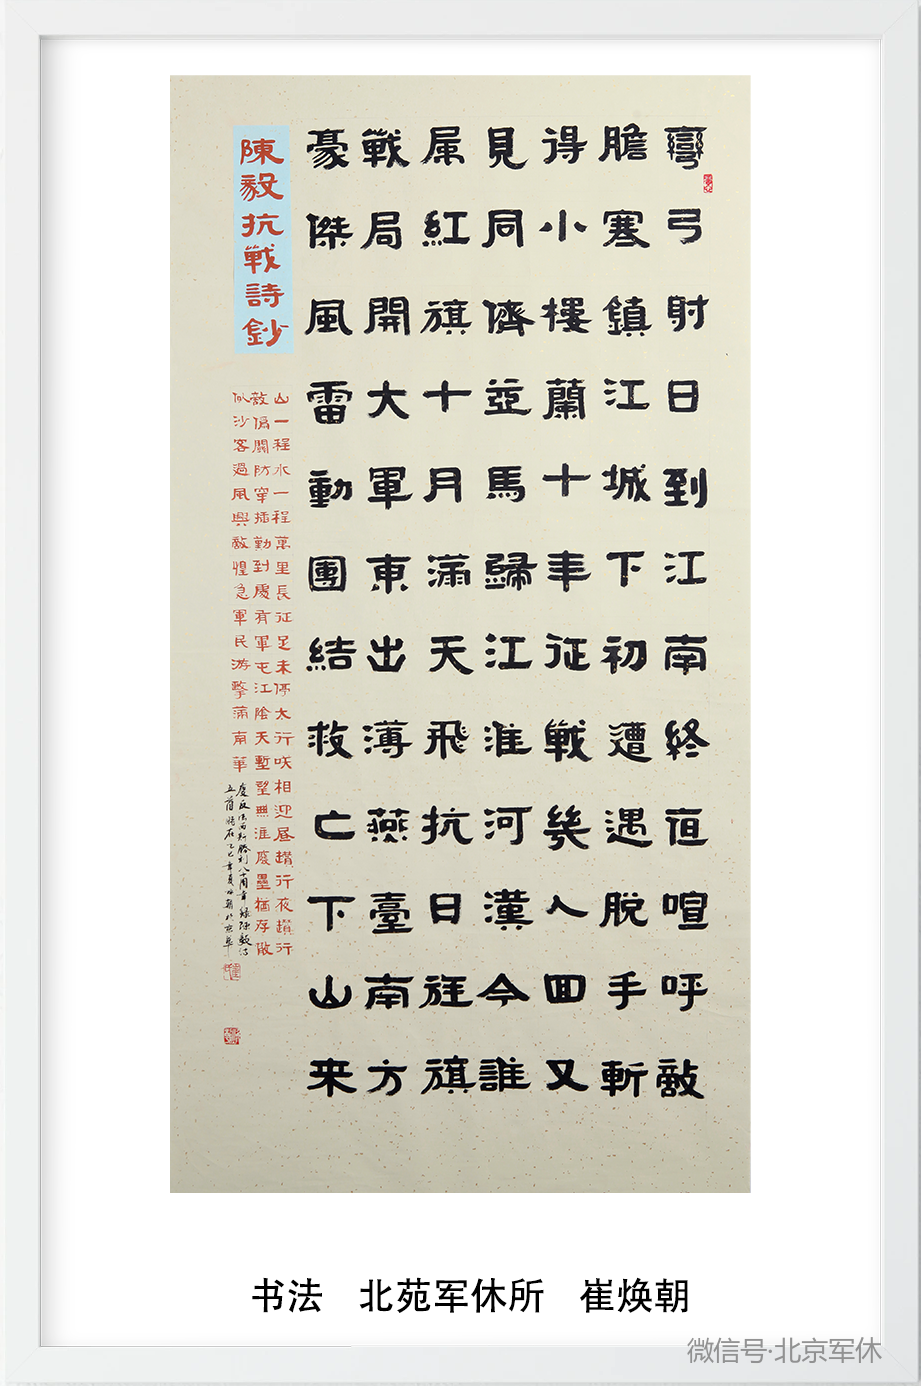 彎弓射日到江南終亱喧呼敵
膽寒鎮江城下初遭遇脫手斬
得小樓蘭十年征戰幾人回又
見同儕並馬歸江淮河漢今誰
屬紅旗十月滿天飛抗日旌旗
戰局開大軍東出薄燕臺南方
豪傑風雷動團結救亡下山來
陳毅抗戰詩鈔
山一程水一程萬里長征足未停太行咲相迎昼趲行夜趲行
敵偽關防穿插勤到處有軍屯江陰天塹望無涯廢壘猶存散
似沙客過風興敵惶急軍民游擊滿南華
慶反法西斯勝利八十周年錄陳毅詩
五首時在乙巳年夏焕朝於京華
书法 北苑军休所 崔焕朝
微信号·北京军休